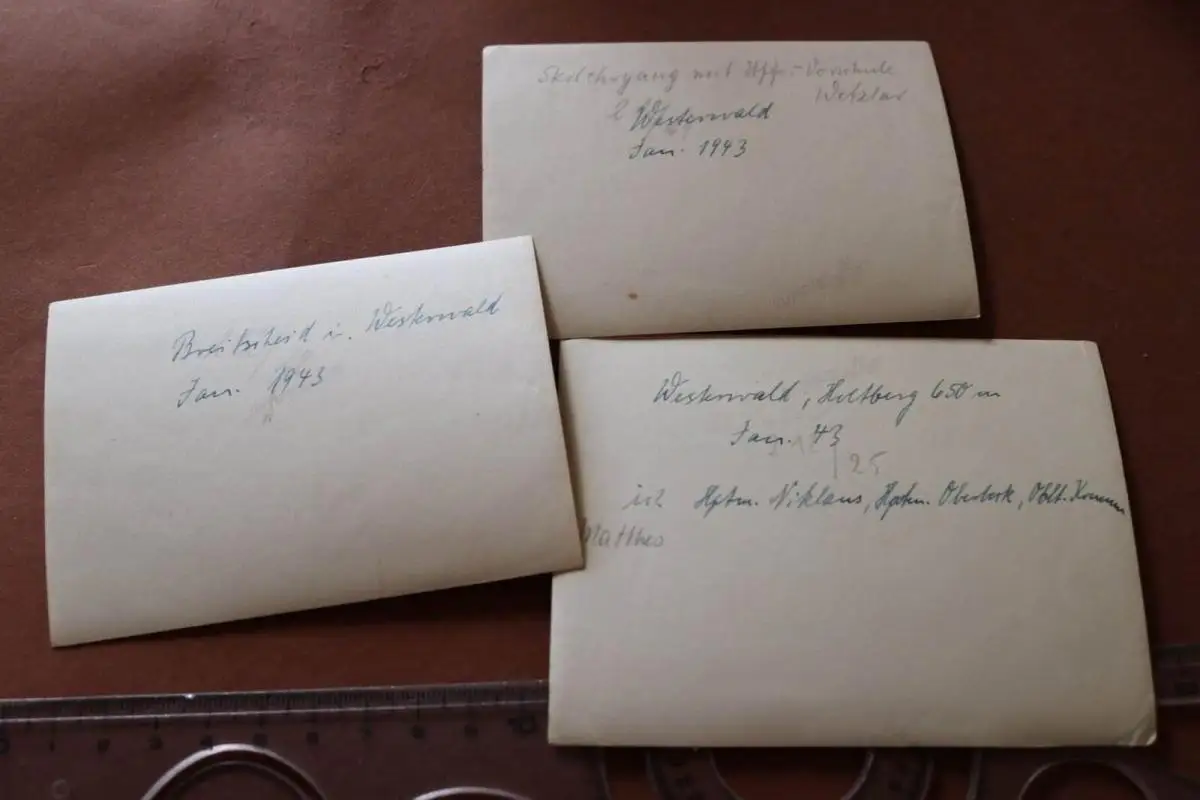 Skilehrgang mit Uffz.-Vorschule
Wetzlar
Westerwald
Jan. 1943
Breitscheid i. Westerwald
Jan. 1943
Westerwald, Höllberg 650 m
Jan. 43
25
ich Hptm. Niklaus, Hptm. Oberbeck, Oblt.
Matthes